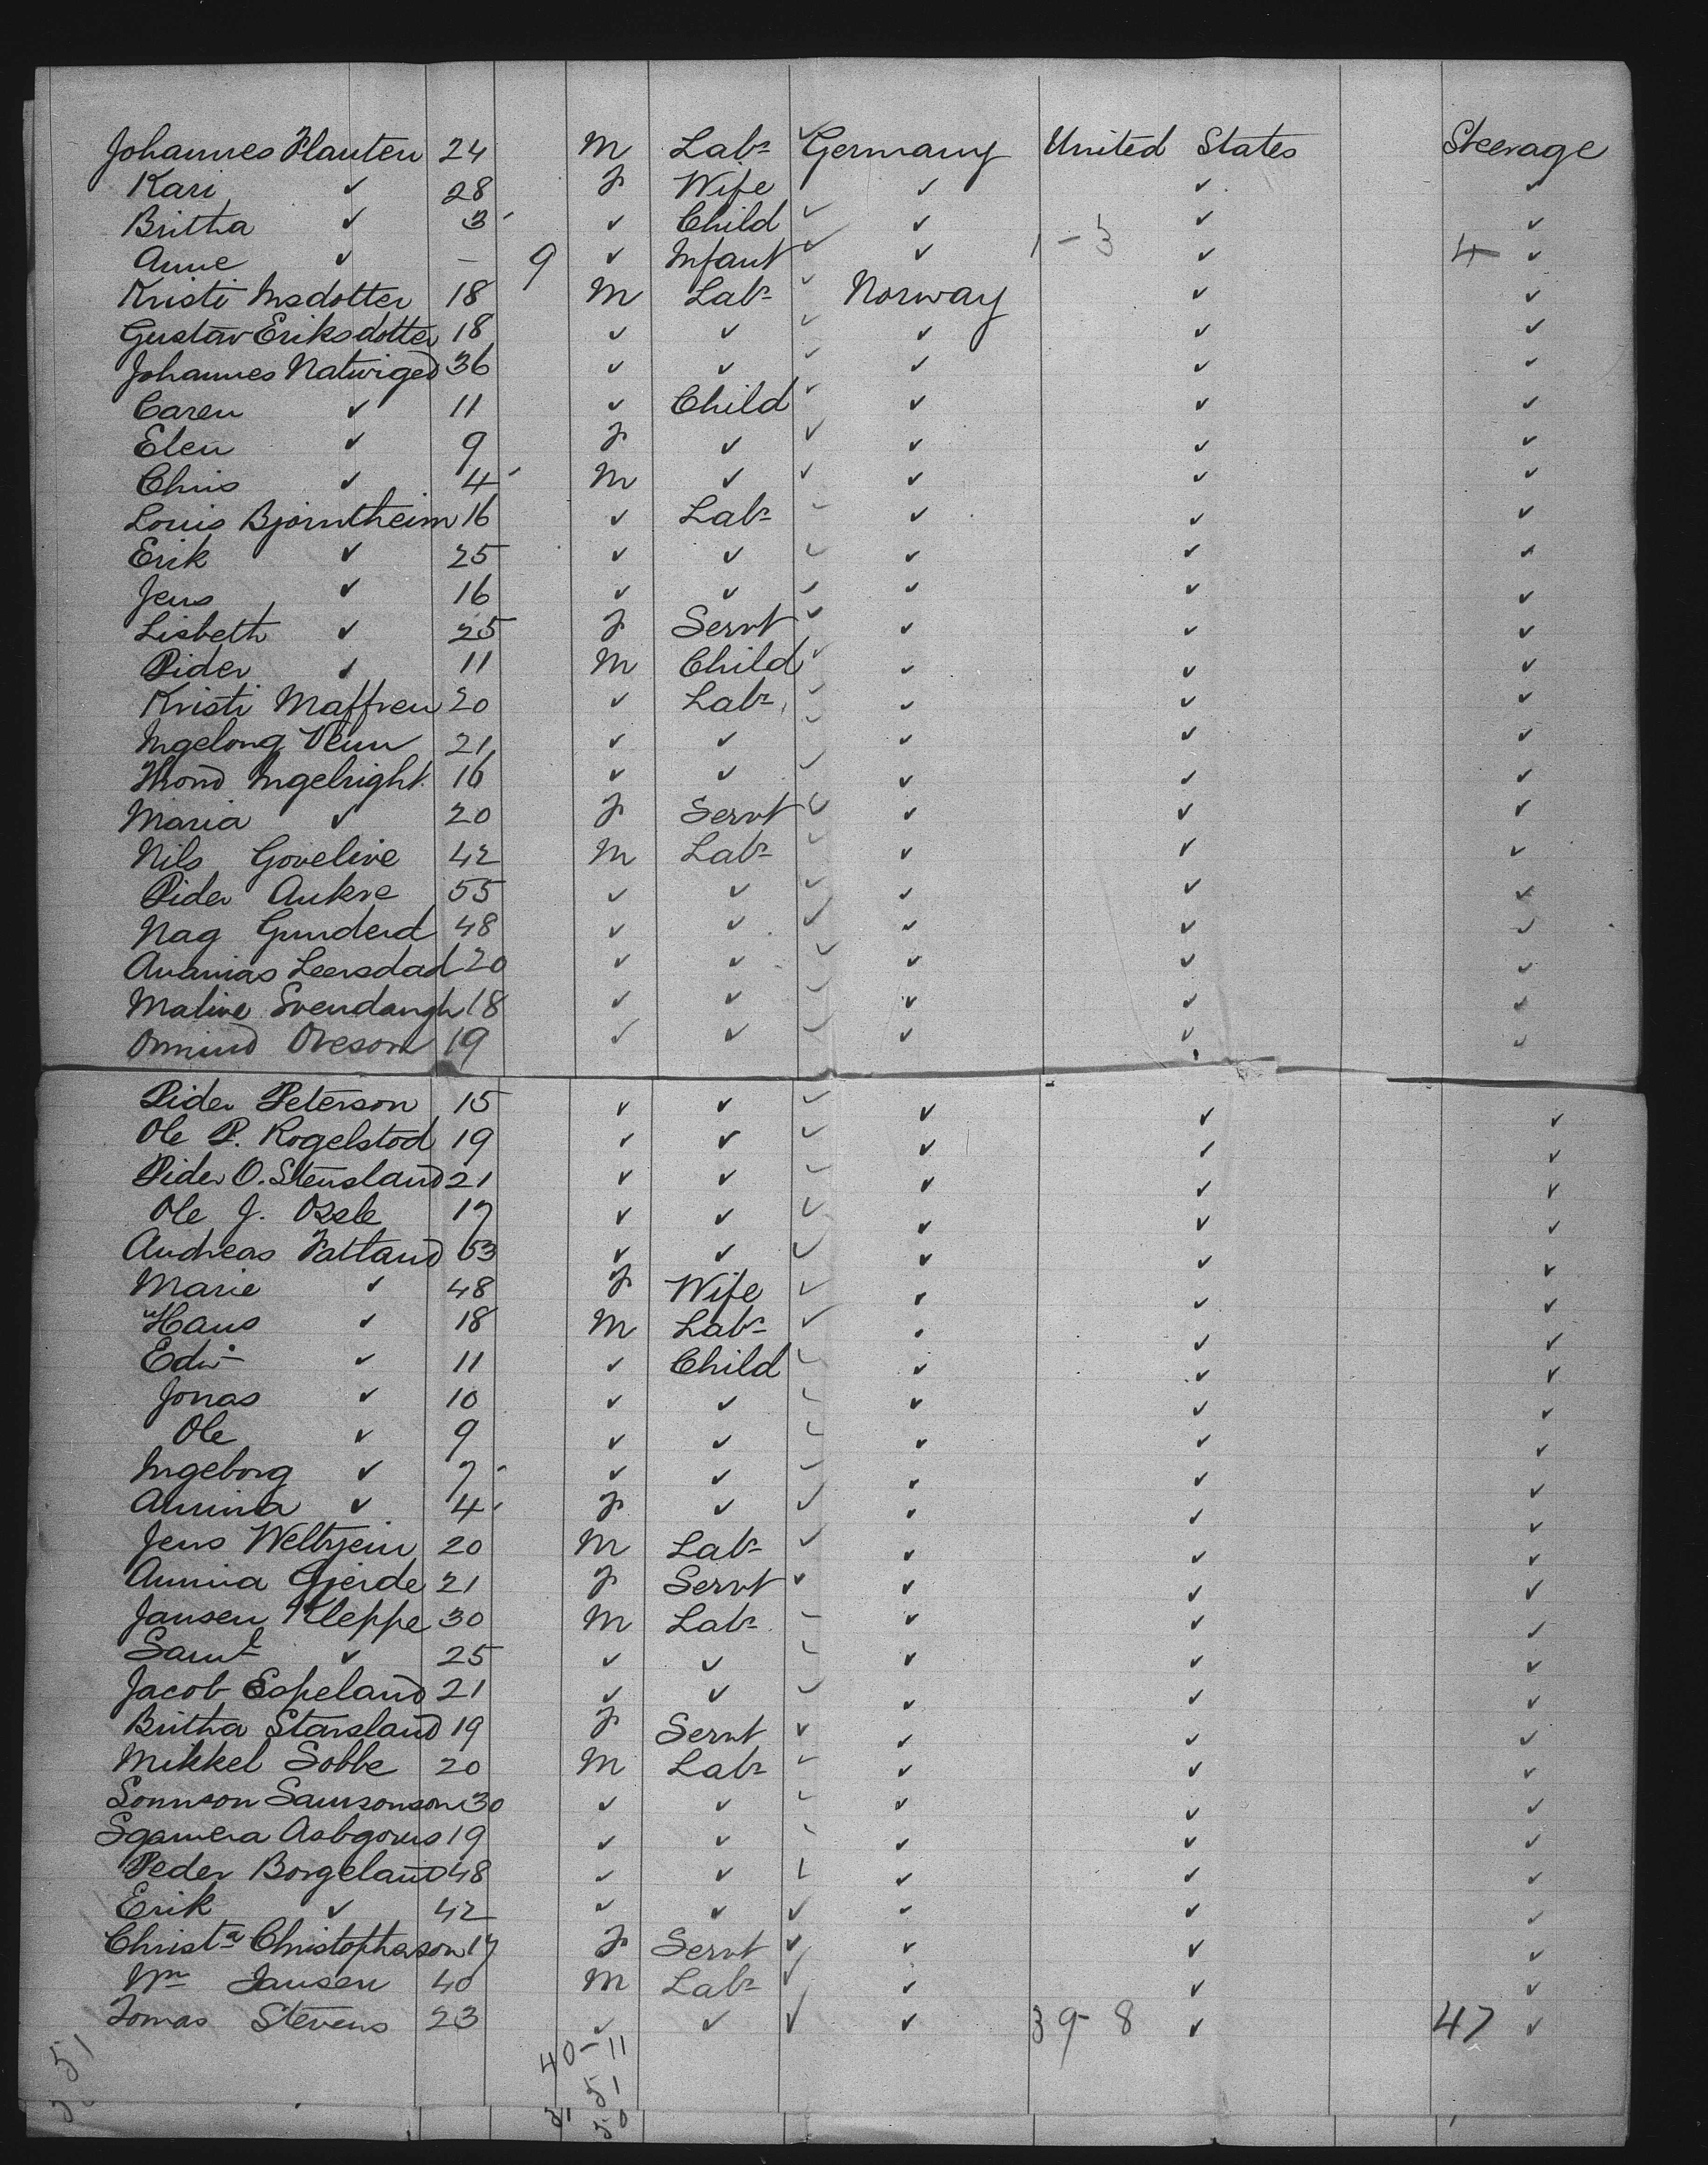 Johannes Flauten 24 M Labr ✓ Germany United States Steerage
Kari ✓ 28 F Wife ✓ ✓ ✓
Britha ✓ 3 ✓ Child ✓ ✓ ✓ ✓
Anne ✓ — 9 ✓ Infant ✓ ✓ 1-3 ✓ 4 ✓
Kristi Insdotter 18 M Labr ✓ Norway ✓ ✓
Gustav Eriksdotter 18 ✓ ✓ ✓ ✓ ✓ ✓
Johannes Natwiged 36 ✓ ✓ ✓ ✓ ✓ ✓
Caren ✓ 11 ✓ Child ✓ ✓ ✓ ✓
Elen ✓ 9 F ✓ ✓ ✓ ✓ ✓
Chris ✓ 4 M ✓ ✓ ✓ ✓ ✓
Louis Bjorntheim 16 ✓ Labr ✓ ✓ ✓ ✓
Erik ✓ 25 ✓ ✓ ✓ ✓ ✓ ✓
Jens ✓ 16 ✓ ✓ ✓ ✓ ✓ ✓
Lisbeth ✓ 25 F Servt ✓ ✓ ✓ ✓
Pider ✓ 11 M Child ✓ ✓ ✓ ✓
Kristi Maffren 20 ✓ Labr ✓ ✓ ✓ ✓
Ingelong Venn 21 ✓ ✓ ✓ ✓ ✓ ✓
Thond Ingelright 16 ✓ ✓ ✓ ✓ ✓ ✓
Maria ✓ 20 F Servt ✓ ✓ ✓ ✓
Nils Govelive 42 M Labr ✓ ✓ ✓ ✓
Pider Aukre 55 ✓ ✓ ✓ ✓ ✓ ✓
Nag Gunderd 48 ✓ ✓ ✓ ✓ ✓ ✓
Ananias Leersdad 20 ✓ ✓ ✓ ✓ ✓ ✓
Malive Svendangh 18 ✓ ✓ ✓ ✓ ✓ ✓
Onmund Oveson 19 ✓ ✓ ✓ ✓ ✓ ✓
Pider Peterson 15 ✓ ✓ ✓ ✓ ✓ ✓
Ole P. Rogelstod 19 ✓ ✓ ✓ ✓ ✓ ✓
Pider O. Stensland 21 ✓ ✓ ✓ ✓ ✓ ✓
Ole J. 17 ✓ ✓ ✓ ✓ ✓ ✓
Andreas Fatland 53 ✓ ✓ ✓ ✓ ✓ ✓
Marie ✓ 48 F Wife ✓ ✓ ✓ ✓
Hans ✓ 18 M Labr ✓ ✓ ✓ ✓
Edwn ✓ 11 ✓ Child ✓ ✓ ✓ ✓
Jonas ✓ 10 ✓ ✓ ✓ ✓ ✓ ✓
Ole ✓ 9 ✓ ✓ ✓ ✓ ✓ ✓
Ingeborg ✓ 7 ✓ ✓ ✓ ✓ ✓ ✓
Annina ✓ 4 F ✓ ✓ ✓ ✓ ✓
Jens Weltzein 20 M Labr ✓ ✓ ✓ ✓
Annina Gjerde 21 F Servt ✓ ✓ ✓ ✓
Jansen Kleppe 30 M Labr ✓ ✓ ✓ ✓
Saml ✓ 25 ✓ ✓ ✓ ✓ ✓ ✓
Jacob Espeland 21 ✓ ✓ ✓ ✓ ✓ ✓
Britha Starsland 19 F Servt ✓ ✓ ✓ ✓
Mikkel Sobbe 20 M Labr ✓ ✓ ✓ ✓
Sonnson Samsonson 30 ✓ ✓ ✓ ✓ ✓ ✓
Sgamera Asbgorus 19 ✓ ✓ ✓ ✓ ✓ ✓
Peder Borgeland 48 ✓ ✓ ✓ ✓ ✓ ✓
Erik ✓ 42 ✓ ✓ ✓ ✓ ✓ ✓
Christa Christopherson 17 F Servt ✓ ✓ ✓ ✓
Wm Jansen 40 M Labr ✓ ✓ ✓ ✓
Tomas Stevens 23 ✓ ✓ ✓ ✓ 39-8 ✓ 47 ✓
51 40-11
51
31 50